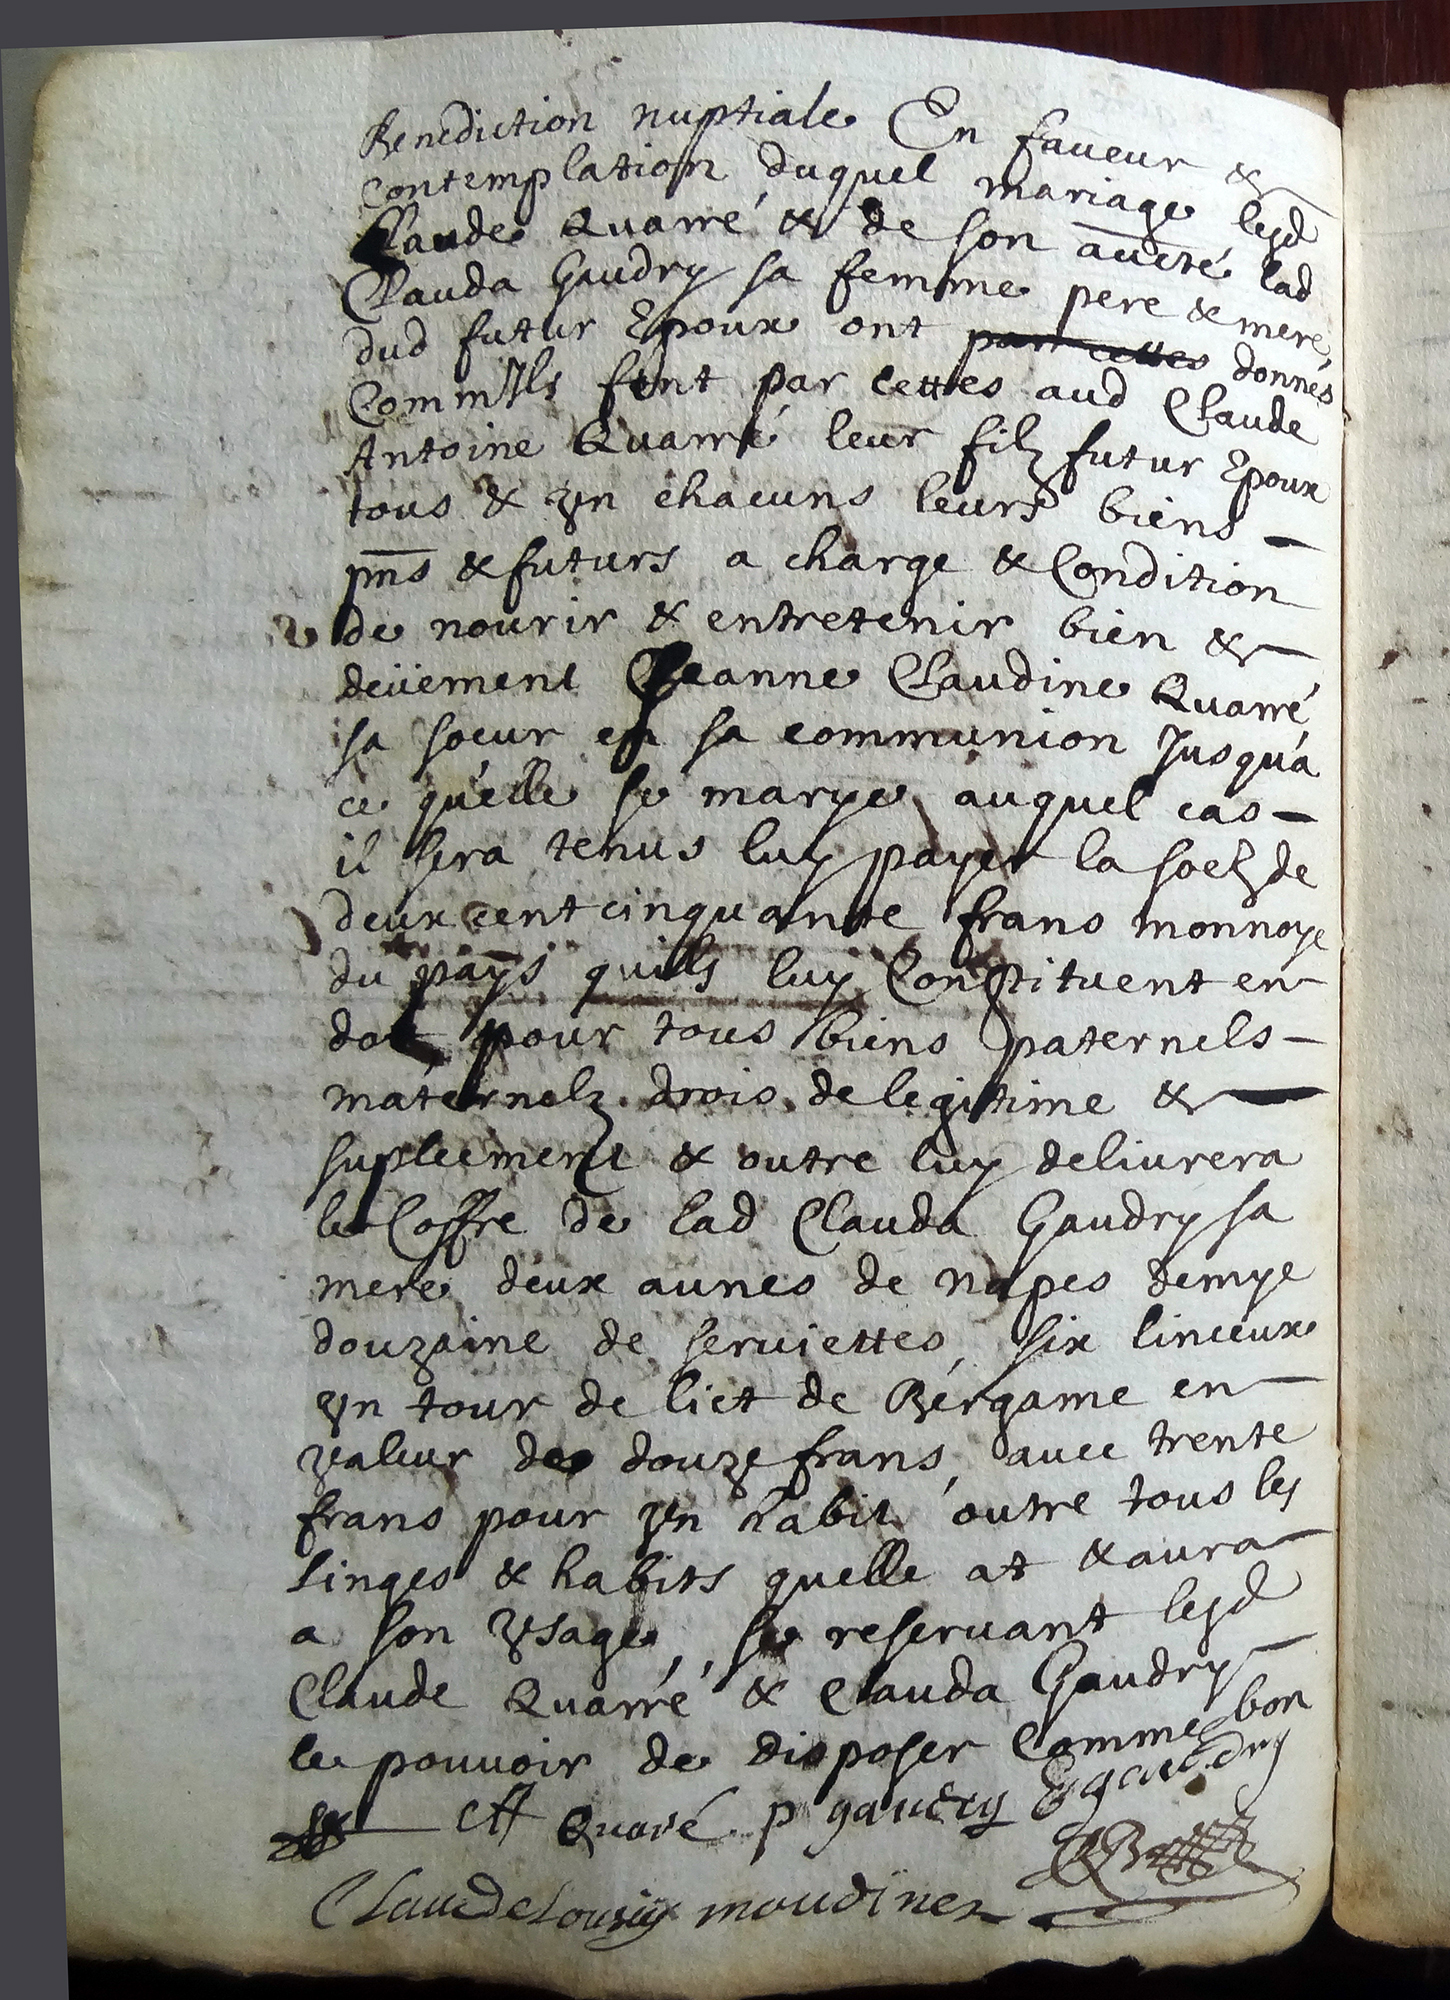 Benediction nuptiale En faueur &
contemplation duquel mariage lesd
Claude Quarré & de son aucté lad
Clauda Gaudry sa femme pere & mere
dud futur Epoux ont par cettes donnés
Comm'Ils font par cettes aud Claude
Antoine Quarré leur filz futur Epoux
tous & vn chacuns leurs biens
pns & futurs a charge & Condition
de nourir & entretenir bien &
deüement Jeanne Claudine Quarré
sa soeur en sa communion Jusqu'a
ce qu'elle se marye auquel cas
il sera tenus luy payer la soe de
deux cent cinquante frans monnoye
du pays quils luy Constituent en
dot pour tous biens paternels
maternelz drois de legitime &
supleement & outre luy deliurera
le Coffre de lad Clauda Gaudry sa
mere deux aunes de napes demye
douzaine de seruiettes, six linceux
vn tour de lict de Bergame en
valeur de douze frans, auec trente
frans pour vn habit outre tous les
linges & habits quelle at & aura
a son vsage, se reseruant lesd
Claude Quarré & Clauda Gaudry
le pouuoir de disposer Comme bon
CA Quaré p gaudry gaudry
Claude Louis moudinez